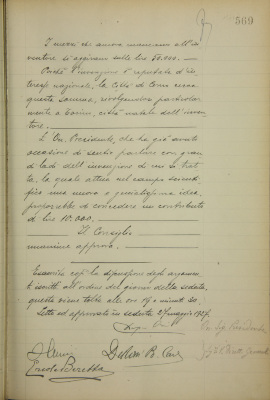 569
I mezzi che ancora mancano all'in
ventore si aggirano sulle lire 50.000. —
Poiché l'invenzione è reputata d'in
teresse nazionale, la Città di Como cerca
questa somma, rivolgendosi particolar
mente a Torino, città natale dell'inven
tore.
L'On. Presidente, che ha già avuto
occasione di sentir parlare con gran
di lodi dell'invenzione di cui si trat
ta, la quale attua nel campo scienti
fico una nuova e genialissima idea,
proporrebbe di concedere un contributo
di lire 10.000.
Il Consiglio
unanime approva.
Esaurita così la discussione degli argomen
ti iscritti all'ordine del giorno della seduta,
questa viene tolta alle ore 19 e minuti 30.
Letto ed approvato in seduta 27 maggio 1927.
Ercole Beretta